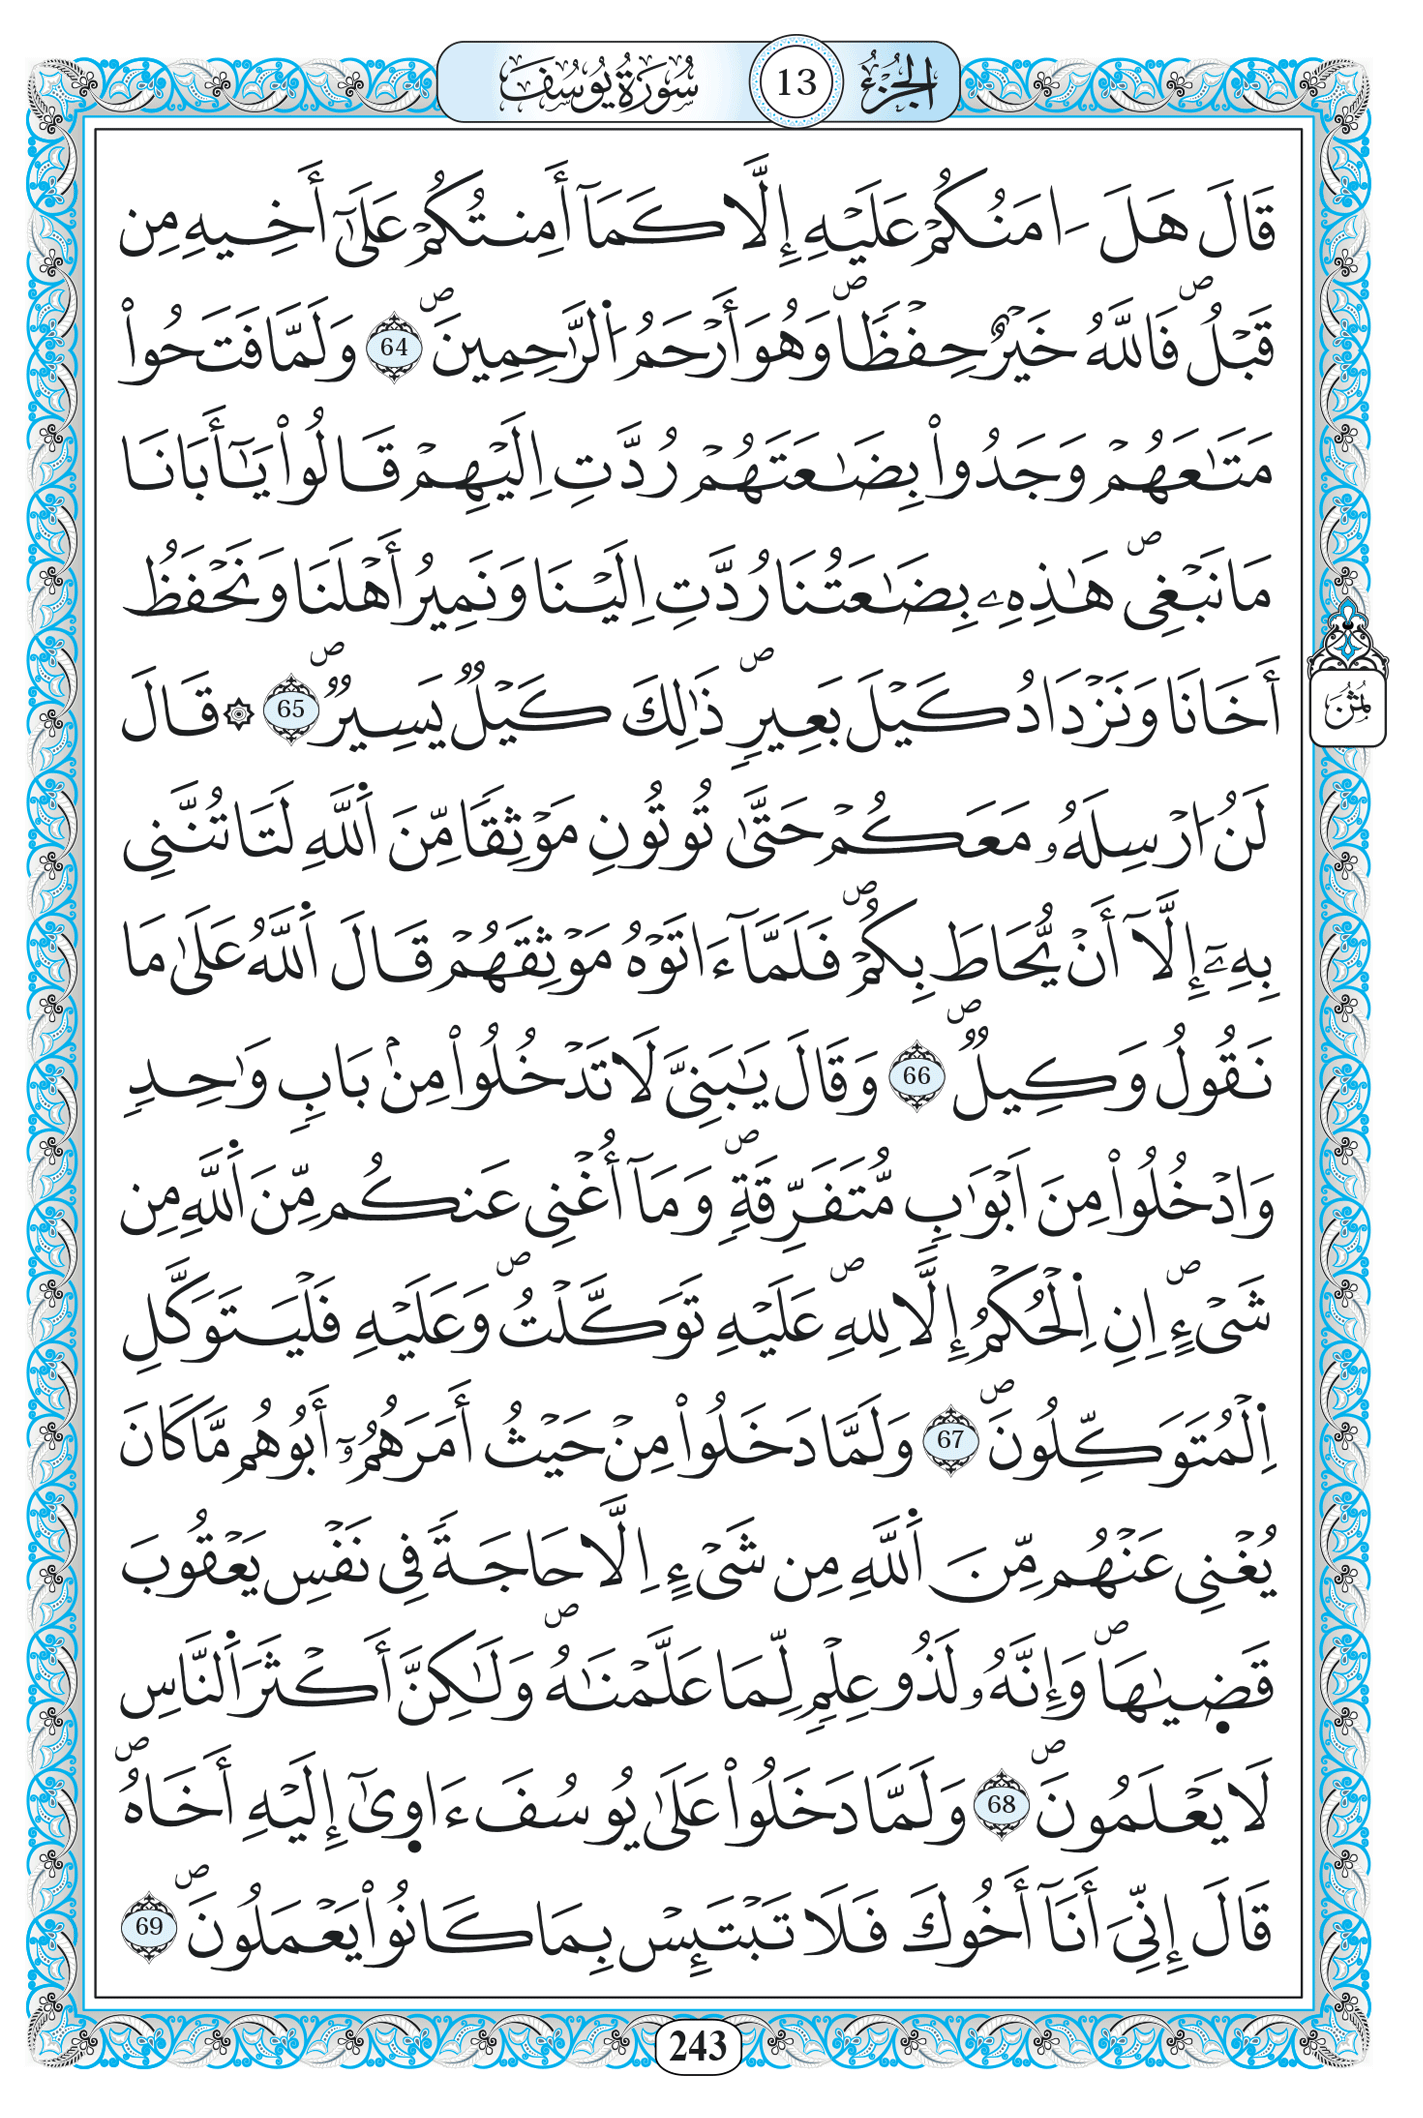 الجُزْءُ 13 سُورَةُ يُوسُفَ
قَالَ هَلَ ـَامَنُكُمْ عَلَيْهِ إِلَّا كَمَآ أَمِنتُكُمْ عَلَىٰٓ أَخِيهِ مِن
قَبْلُۖ فَاللَّهُ خَيْرٌ حِفْظاٗۖ وَهُوَ أَرْحَمُ اُ۬لرَّٰحِمِينَۖ 64 وَلَمَّا فَتَحُواْ
مَتَٰعَهُمْ وَجَدُواْ بِضَٰعَتَهُمْ رُدَّتِ اِلَيْهِمْ قَالُواْ يَٰٓأَبَانَا
مَا نَبْغِےۖ هَٰذِهِۦ بِضَٰعَتُنَا رُدَّتِ اِلَيْنَا وَنَمِيرُ أَهْلَنَا وَنَحْفَظُ
أَخَانَا وَنَزْدَادُ كَيْلَ بَعِيرٖۖ ذَٰلِكَ كَيْلٌ يَسِيرٌۖ 65 ۞ قَالَ
ثُمُنُ
لَنُ ا۟رْسِلَهُۥ مَعَكُمْ حَتَّىٰ تُوتُونِ مَوْثِقاٗ مِّنَ اَ۬للَّهِ لَتَاتُنَّنِے
بِهِۦٓ إِلَّآ أَنْ يُّحَاطَ بِكُمْۖ فَلَمَّآ ءَاتَوْهُ مَوْثِقَهُمْ قَالَ اَ۬للَّهُ عَلَىٰ مَا
نَقُولُ وَكِيلٌۖ 66 وَقَالَ يَٰبَنِيَّ لَا تَدْخُلُواْ مِنۢ بَابٖ وَٰحِدٖ
وَادْخُلُواْ مِنَ اَبْوَٰبٖ مُّتَفَرِّقَةٖۖ وَمَآ أُغْنِے عَنكُم مِّنَ اَ۬للَّهِ مِن
شَےْءٍۖ اِنِ اِ۬لْحُكْمُ إِلَّا لِلهِۖ عَلَيْهِ تَوَكَّلْتُۖ وَعَلَيْهِ فَلْيَتَوَكَّلِ
اِ۬لْمُتَوَكِّلُونَۖ 67 وَلَمَّا دَخَلُواْ مِنْ حَيْثُ أَمَرَهُمُۥٓ أَبُوهُم مَّا كَانَ
يُغْنِے عَنْهُم مِّنَ اَ۬للَّهِ مِن شَےْءٍ اِلَّا حَاجَةٗ فِے نَفْسِ يَعْقُوبَ
قَضٜيٰهَاۖ وَإِنَّهُۥ لَذُو عِلْمٖ لِّمَا عَلَّمْنَٰهُۖ وَلَٰكِنَّ أَكْثَرَ اَ۬لنَّاسِ
لَا يَعْلَمُونَۖ 68 وَلَمَّا دَخَلُواْ عَلَىٰ يُوسُفَ ءَاوٜىٰٓ إِلَيْهِ أَخَاهُۖ
قَالَ إِنِّيَ أَنَآ أَخُوكَ فَلَا تَبْتَئِسْ بِمَا كَانُواْ يَعْمَلُونَۖ 69
243